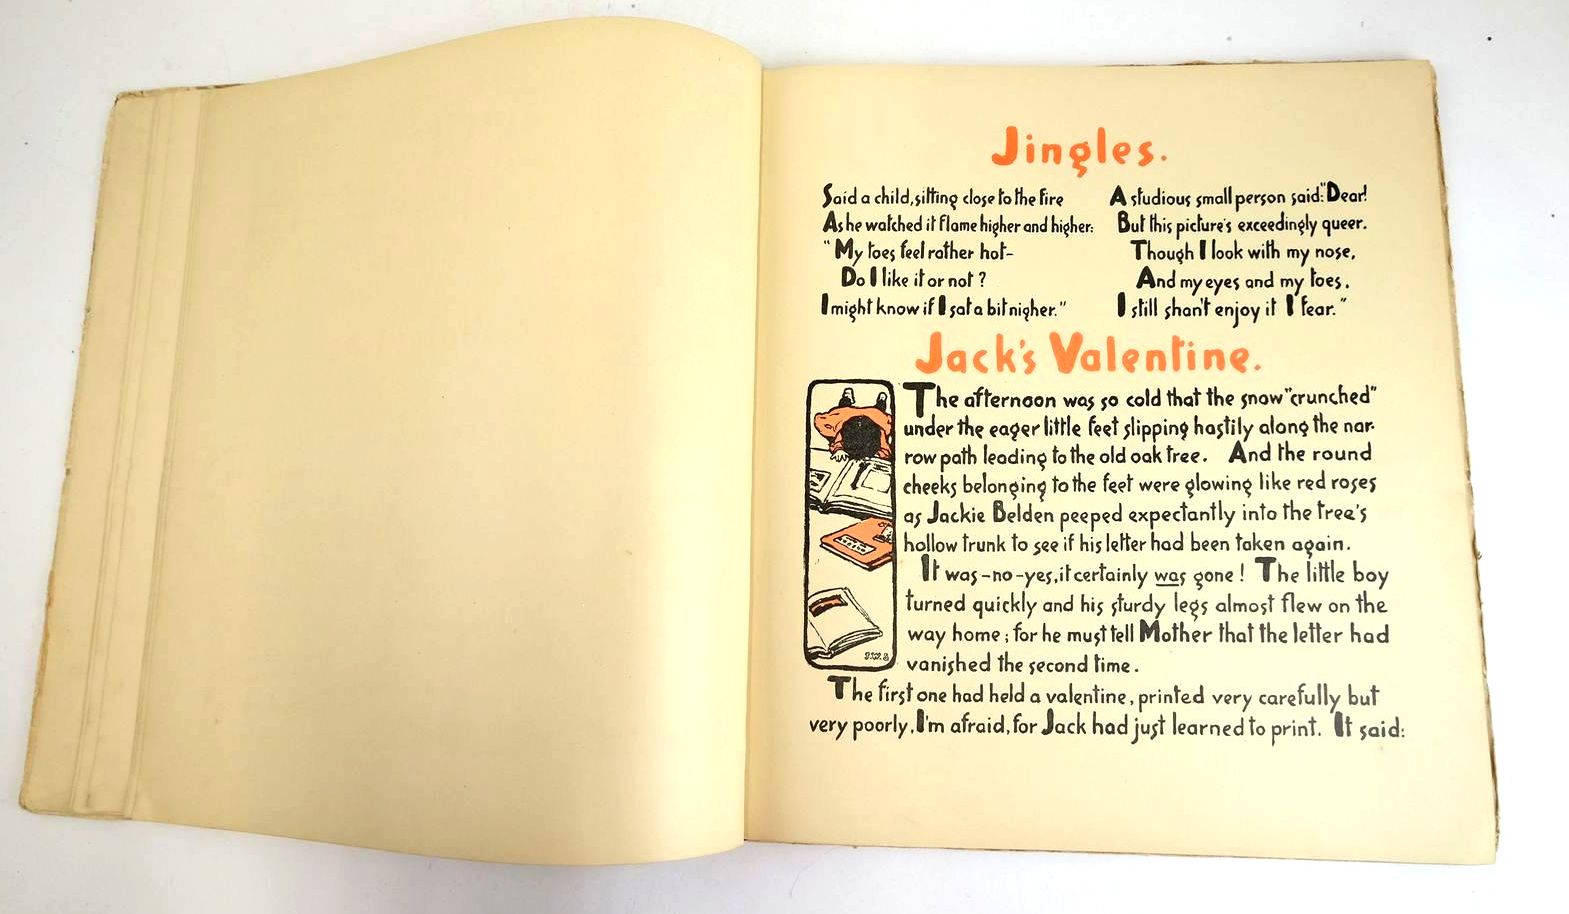 Jingles.
Said a child, sitting close to the fire
As he watched it flame higher and higher:
"My toes feel rather hot-
Do I like it or not?
I might know if I sat a bit nigher."
A studious small person said: "Dear!
But this picture's exceedingly queer.
Though I look with my nose,
And my eyes and my toes,
I still shan't enjoy it I fear."
Jack's Valentine.
The afternoon was so cold that the snow "crunched"
under the eager little feet slipping hastily along the nar-
row path leading to the old oak tree. And the round
cheeks belonging to the feet were glowing like red roses
as Jackie Belden peeped expectantly into the tree's
hollow trunk to see if his letter had been taken again.
It was-no-yes, it certainly was gone! The little boy
turned quickly and his sturdy legs almost flew on the
way home; for he must tell Mother that the letter had
vanished the second time.
The first one had held a valentine, printed very carefully but
very poorly, I'm afraid, for Jack had just learned to print. It said: